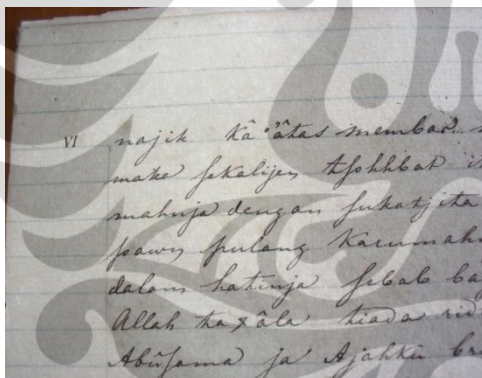 VI najik kâ ätas membar
make sekalijen tsohhbat
mahnja dengan sukatjita
pawn pulang karumah
dalam hatinja sebab
Allah ta x âla tiada
Abûsama ja Ajahku